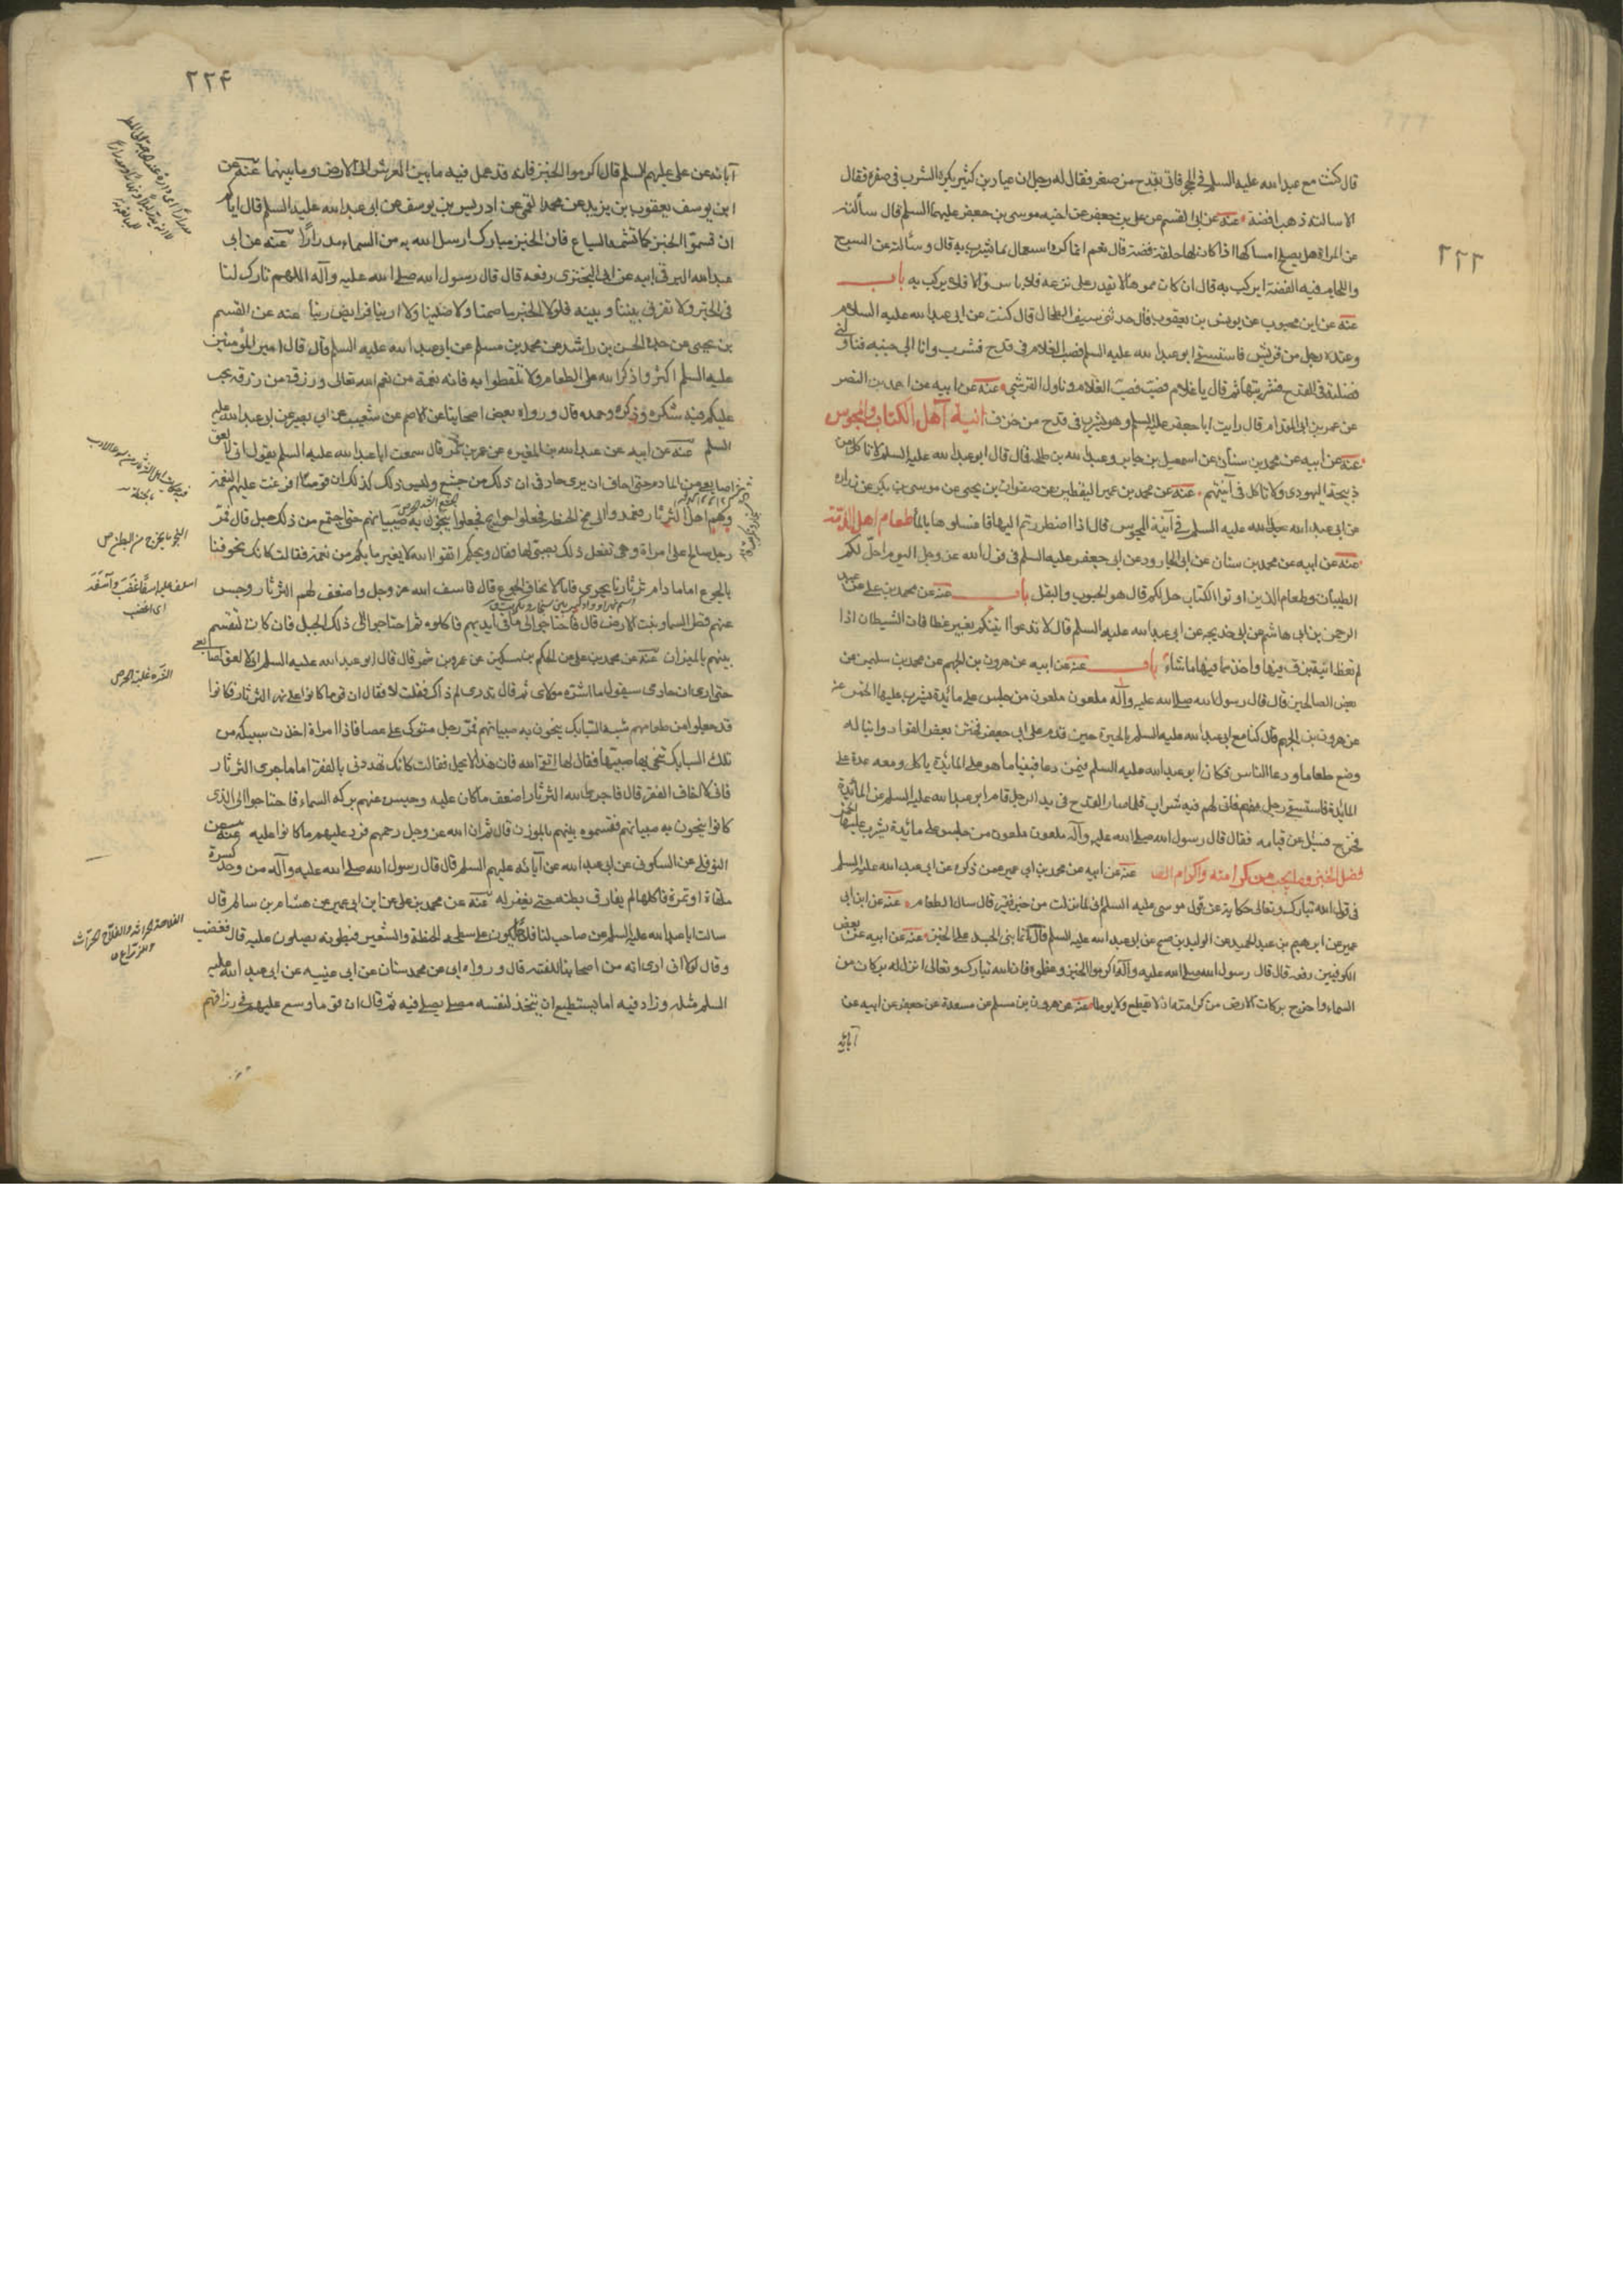 ٢٢٣
قال كنت مع عبدا لله عليه السلم في الحجر فاتى بقدح من صفر فقال له رجل ان عباد بن كثير يكره الشرب في صفر فقال
الا سالته ذهب ام فضة عنه عن ابى القسم عن على بن جعفر عن اخيه موسى بن جعفر عليهما السلم قال سألته
عن المرآة هل يصلح امساكها اذا كان لها حلقة فضة قال نعم انما كره استعمال ما يشرب به قال وسألته عن السرج
واللجام فيه الفضة ايركب به قال ان كان مموها لا يقدر على نزعه فلا باس والا فلا يركب به باب
عنه عن ابن محبوب عن يونس بن يعقوب قال حدثنى سيف الطحان قال كنت عن ابى عبدا لله عليه السلام
وعنده رجل من قريش فاستسقى ابو عبدا لله عليه السلم فصب الغلام فى قدح فشرب وانا الى جنبه فناولنى
فضلته فى القدح فشربتها ثم قال يا غلام صب فصب الغلام وناول القرشى عنه عن ابيه عن احمد بن النضر
عن عمر بن ابى المقدام قال رايت ابا جعفر عليه السلم وهو يشرب فى قدح من خزف انية اهل الكتاب والمجوس
عنه عن ابيه عن محمد بن سنان عن اسمعيل بن جابر وعبدا لله بن طلحة قال قال ابو عبدا لله عليه السلم لا تاكل من
ذبيحة اليهودى ولا تاكل فى آنيتهم عنه عن محمد بن عيسى اليقطينى عن صفوان بن يحيى عن موسى بن بكر عن زراره
عن ابى عبدا لله عليه السلم فى آنية المجوس قال اذا اضطررتم اليها فاغسلوها بالماء طعام اهل الذمة
عنه عن ابيه عن محمد بن سنان عن ابى الجارود عن ابى جعفر عليه السلم فى قول الله عز وجل اليوم احل لكم
الطيبات وطعام الذين اوتوا الكتاب حل لكم قال هو الحبوب والبقل باب عنه عن محمد بن على عن عبد
الرحمن بن ابى هاشم عن ابى خديجة عن ابى عبدا لله عليه السلم قال لا تدعوا انيتكم بغير غطا فان الشيطان اذا
لم تغط انية بزق فيها واخذ مما فيها ما شاء باب عنه عن ابيه عن هرون بن الجهم عن محمد بن سليمن عن
بعض الصالحين قال قال رسول الله صلى الله عليه وآله ملعون ملعون من جلس على مائدة يشرب عليها الخمر عنه
عن هرون بن الجهم قال كنا مع ابى عبدا لله عليه السلم بالحيرة حين قدم على ابى جعفر فختن بعض القواد وابنا له
وضع طعاما ودعا الناس فكان ابو عبدا لله عليه السلم فيمن دعا فبينما هو على المائدة ياكل ومعه عدة على
المائدة فاستسقى رجل منهم فاتى لهم فيه شراب فلما صار القدح فى يد الرجل قام ابو عبدا لله عليه السلم عن المائدة
فخرج فسئل عن قيامه فقال قال رسول الله صلى الله عليه وآله ملعون ملعون من جلس على مائدة يشرب عليها الخمر
فضل الخبز وما يجب من اكرامه عنه عن ابيه عن محمد بن ابى عمير عمن ذكره عن ابى عبدا لله عليه السلم
فى قول الله تبارك وتعالى حكاية عن قول موسى عليه السلم انى لما انزلت من خير فقير قال سال الطعام عنه عن ابن ابى
عمير عن ابرهيم بن عبد الحميد عن الوليد بن صبيح عن ابى عبدا لله عليه السلم قال انما بنى الجسد على الخبز عنه عن ابيه عن بعض
الكوفيين رفعه قال قال رسول الله صلى الله عليه وآله اكرموا الخبز وعظموه فان الله تبارك وتعالى انزل له بركات من
السماء واخرج بركات الارض من كرامته ان لا يقطع ولا يوطا عنه عن هرون بن مسلم عن مسعدة عن جعفر عن ابيه عن
آبائه
٢٢٤
آبائه عن على عليهم السلم قال اكرموا الخبز فانه قد عمل فيه ما بين العرش الى الارض وما بينهما عنه عن
ابن يوسف يعقوب بن يزيد عن محمد القمى عن ادريس بن يوسف عن ابى عبدا لله عليه السلم قال اياكم
ان تشموا الخبز كما تشمه السباع فان الخبز مبارك ارسل الله به من السماء مدرارا عنه عن ابى
عبدا لله البرقى ابيه عن ابى البخترى رفعه قال قال رسول الله صلى الله عليه وآله اللهم بارك لنا
فى الخبز ولا تفرق بيننا وبينه فلولا الخبز ما صمنا ولا صلينا ولا ادينا فرايض ربنا عنه عن القسم
بن يحيى عن جده الحسن بن راشد عن محمد بن مسلم عن ابو عبدا لله عليه السلم قال قال امير المؤمنين
عليه السلم اكثروا ذكر الله على الطعام ولا تلغطوا به فانه نعمة من نعم الله تعالى ورزق من رزقه يجب
عليكم فيه شكره وذكره وحمده قال ورواه بعض اصحابنا عن الاصم عن شعيب عن ابى بصير عن ابى عبدا لله عليه
السلم عنه عن ابيه عن عبدا لله بن المغيره عن عمرو بن شمر قال سمعت ابا عبدا لله عليه السلم يقول انى لالعق
اصابعى من المادم حتى اخاف ان يرى خادمى ان ذلك من جشع وليس ذلك كذلك ان قوما افرغت عليهم النعمة
وهم اهل الثرثار فعمدوا الى مخ الحنطة فجعلوا خبزا هجاء فجعلوا ينجون به صبيانهم حتى اجتمع من ذلك جبل قال فمر
رجل صالح على امراة وهى تفعل ذلك بصبى لها فقال ويحكم اتقوا الله لا يغير ما بكم من نعمة فقالت كانك تخوفنا
بالجوع اما ما دام ثرثارنا يجرى فانا لا نخاف الجوع قال فاسف الله عز وجل واضعف لهم الثرثار وحبس
عنهم قطر السما ونبت الارض قال فاحتاجوا الى ما فى ايديهم فاكلوه ثم احتاجوا الى ذلك الجبل فان كان ليقسم
بينهم بالميزان عنه عن محمد بن على عن الحكم بن مسكين عن عمرو بن شمر قال قال ابو عبدا لله عليه السلم انى لالعق اصابعى
حتى ارى ان خادمى سيقول ما اشره مولاى ثم قال تدرى لم ذاك فقلت لا فقال ان قوما كانوا على نهر الثرثار فكانوا
قد جعلوا من طعامهم شبه السبايك ينجون به صبيانهم فمر رجل متوكى على عصا فاذا امراة اخذت سبيكه من
تلك السبايك تنجى بها صبيتها فقال لها اتق الله فان هذا لا يحل فقالت كانك تهددنى بالفقر اما ما جرى الثرثار
فانى لا اخاف الفقر قال فاجرى الله الثرثار اضعف ما كان عليه وحبس عنهم بركه السماء فاحتاجوا الى الذى
كانوا ينجون به صبيانهم فقسموه بينهم بالوزن قال ثم ان الله عز وجل رحمهم فرد عليهم ما كانوا عليه عنه عن
النوفلى عن السكونى عن ابى عبدا لله عن آبائه عليهم السلم قال قال رسول الله صلى الله عليه وآله من وجد كسرة
ملقاة او تمرة فاكلها لم يفارق بطنه حتى يغفر له عنه عن محمد بن على عن ابن ابى عمير عن هشام بن سالم قال
سالت ابا عبدا لله عليه السلم عن صاحب لنا فلاح يكون على سطحه الحنطة والشعير فيطونه يصلون عليه قال فغضب
وقال لولا انى ارى انه من اصحابنا للعنته قال ورواه ابى عن محمد سنان عن ابى عيينه عن ابى عبدا لله عليه
السلم مثله وزاد فيه اما يستطيع ان يتخذ لنفسه مصلى يصلى فيه ثم قال ان قوما وسع عليهم فى ارزاقهم
النجو ما يخرج من البطن ص
اسف عليه اسفا غضب وآسفه
اى اغضب
الشره غلبة الحرص